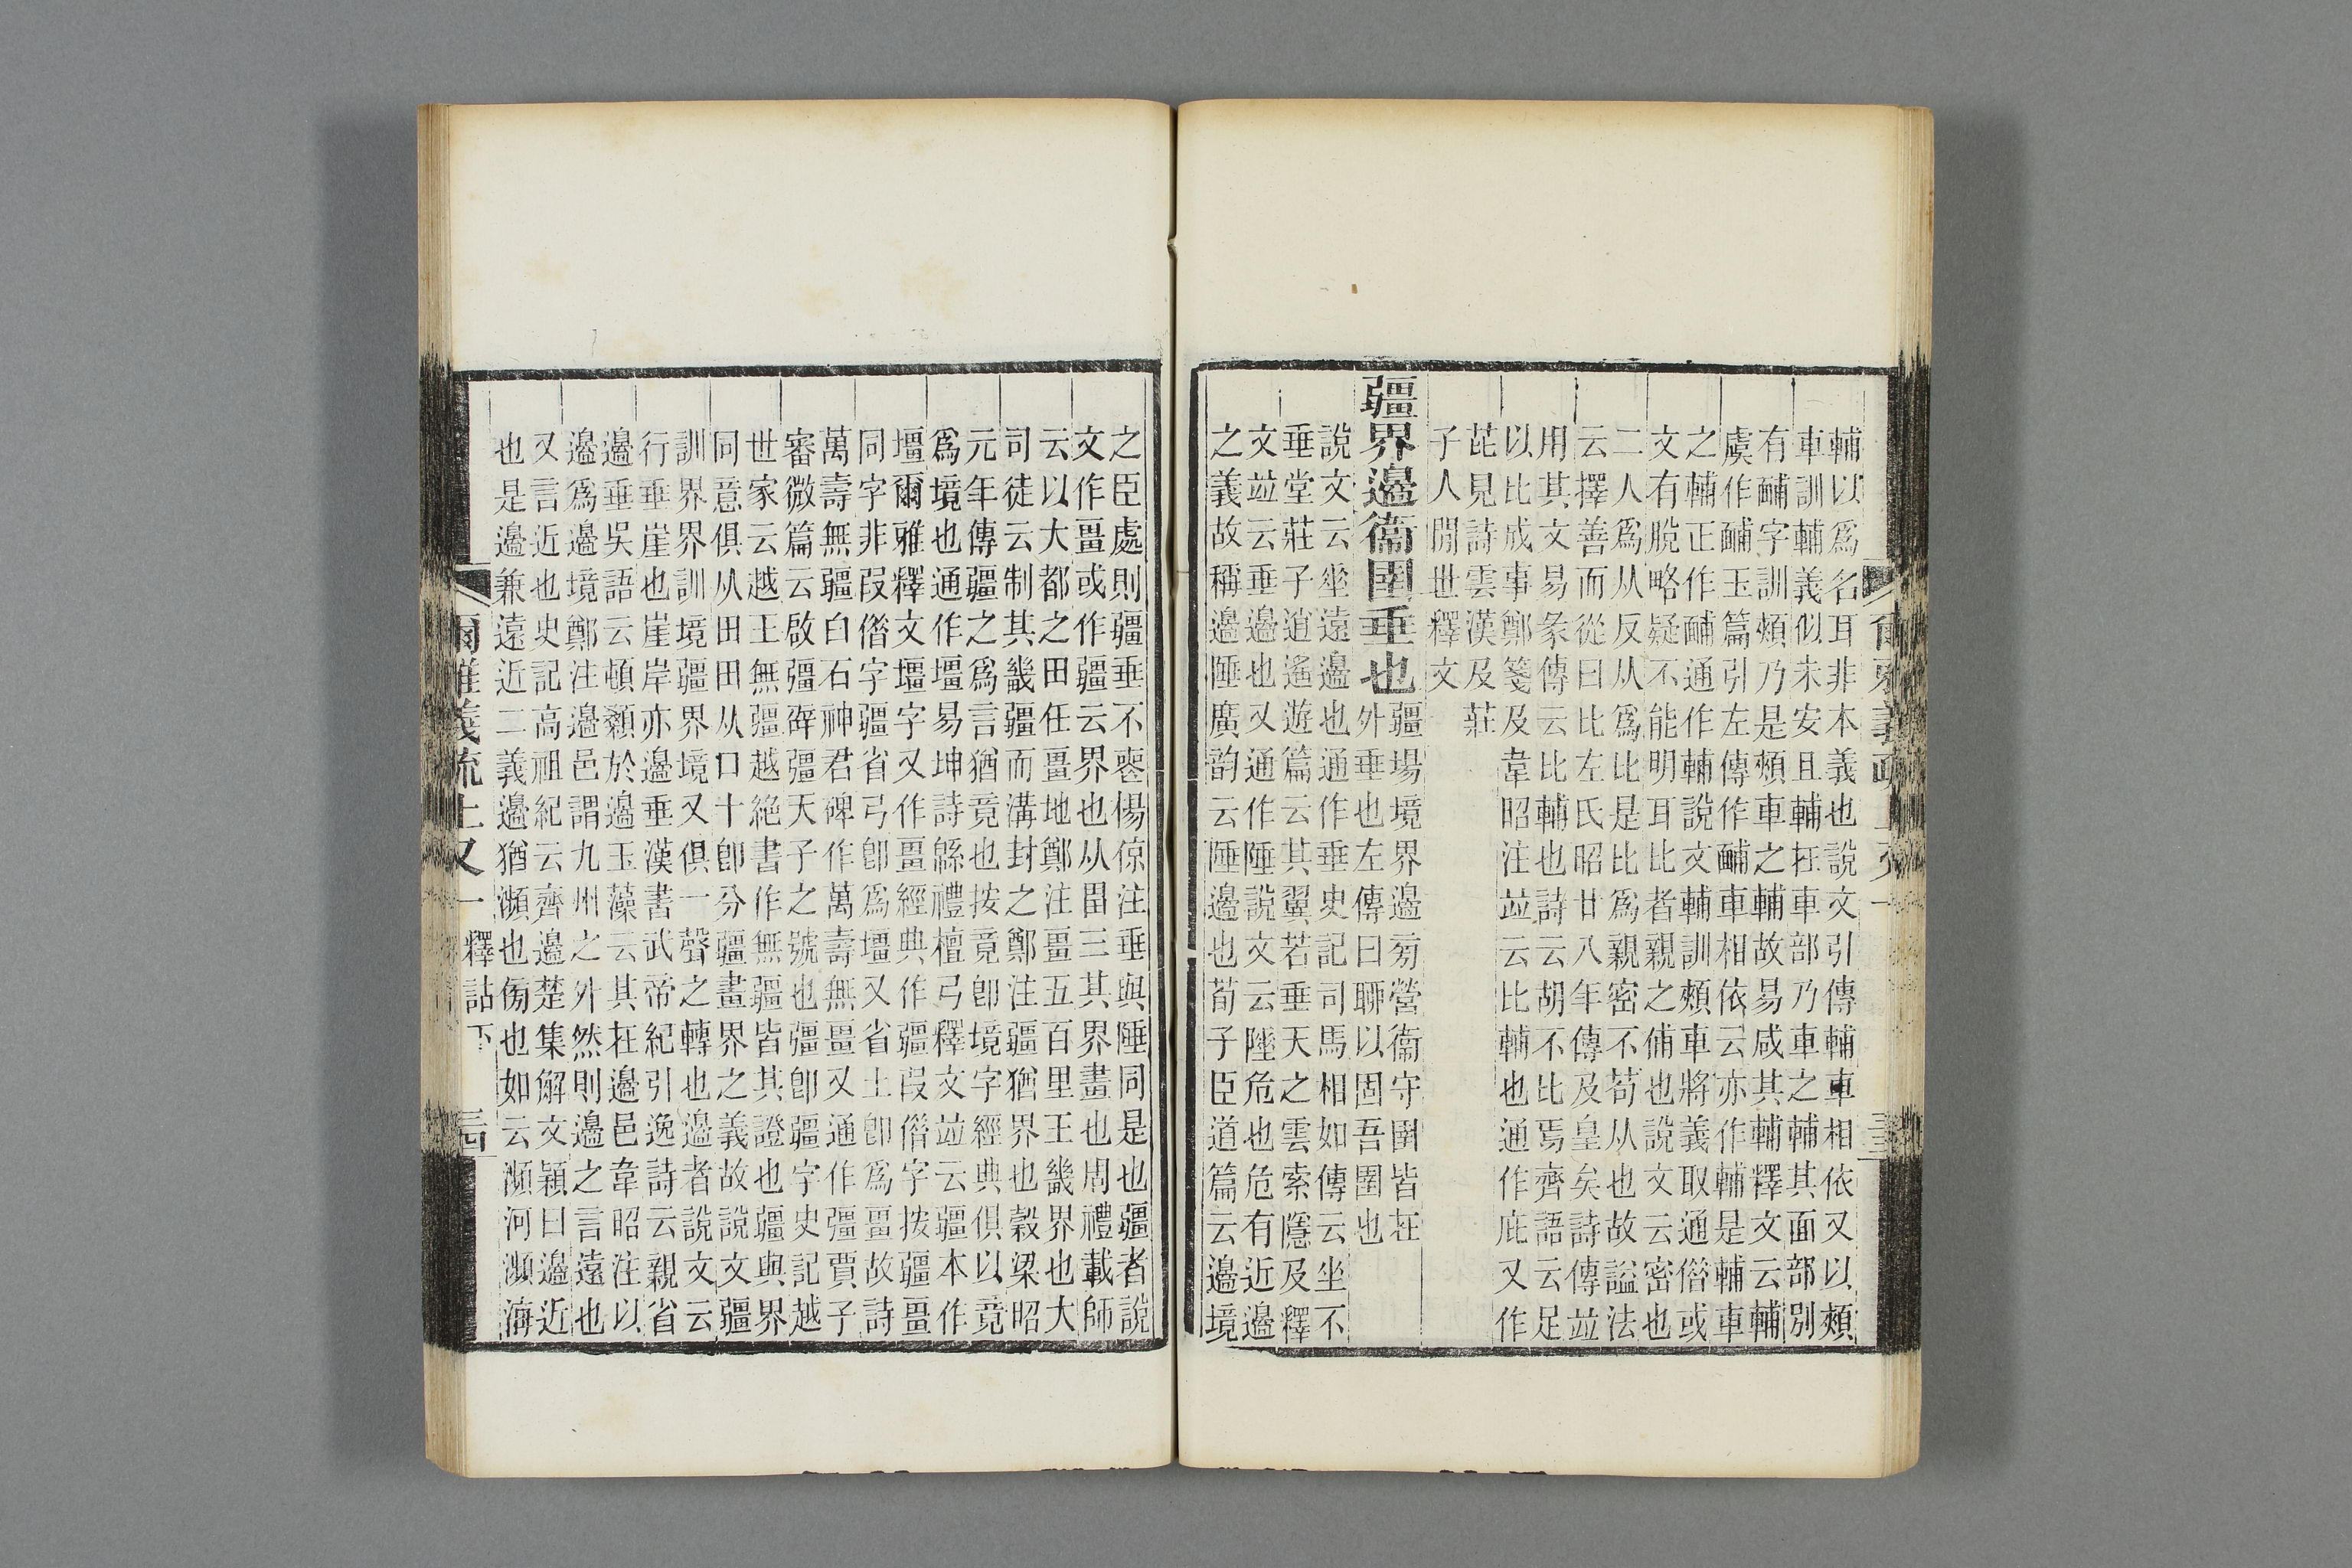 輔以爲名耳非本義也說文引傳輔車相依又以頰
車訓輔義似未安且輔在車部乃車之輔其面部別
有䩉字訓頰乃是頰車之輔故易咸其輔釋文云輔
虞作䩉玉篇引左傳作䩉車相依云亦作輔是輔車
之輔正作䩉通作輔說文輔訓頰車將義取通偺或
文有脫略疑不能明耳比者親之俌也說文云密也
二人爲从反从爲比是比爲親密不苟从也故謚法
云擇善而從曰比左氏昭廿八年傳及皇矣詩傳竝
用其文易彖傳云比輔也詩云胡不比焉齊語云足
以比成事鄭箋及韋昭注竝云比輔也通作庇又作
芘見詩雲漢及莊
子人閒世釋文
疆界邊衞圉垂也
疆場境界邊旁營衞守圉皆在
外垂也左傳曰聊以固吾圉也
說文云坐遠邊也通作垂史記司馬相如傳云坐不
垂堂莊子逍遙遊篇云其翼若垂天之雲索隱及釋
文竝云垂邊也又通作陲說文云陲危也危有近邊
之義故稱邊陲廣韵云陲邊也荀子臣道篇云邊境
之臣處則疆垂不喪楊倞注垂與陲同是也疆者說
文作畺或作疆云界也从畕三其界畫也周禮載師
云以大都之田任畺地鄭注畺五百里王畿界也大
司徒云制其畿疆而溝封之鄭注疆猶界也穀梁昭
元年傳疆之爲言猶竟也按竟卽境字經典俱以竟
爲境也通作壃易坤詩緜禮檀弓釋文竝云疆本作
壃爾雅釋文壃字又作畺經典作疆叚偺字按疆畺
同字非叚偺字疆省弓卽爲壃又省土卽爲畺故詩
萬壽無疆白石神君碑作萬壽無畺又通作彊賈子
審微篇云啟疆辟疆天子之號也彊卽疆字史記越
世家云越王無疆越絕書作無疆皆其證也疆與界
同意俱从田田从口十卽分疆畫界之義故說文疆
訓界界訓境疆界境又俱一聲之轉也邊者說文云
行垂崖也崖岸亦邊垂漢書武帝紀引逸詩云親省
邊垂吳語云頓顙於邊玉藻云其在邊邑韋昭注以
邊爲邊境鄭注邊邑謂九州之外然則邊之言遠也
又言近也史記高祖紀云齊邊楚集解文穎曰邊近
也是邊兼遠近二義邊猶瀕也傍也如云瀕河瀕海
爾雅義疏上又一 釋詁下 三四